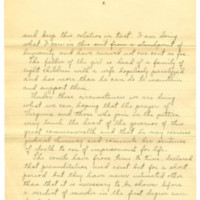 and keep this relation in tact. I am doing
what I am in this suit from a standpoint of
humanity and have
The father of the girl is head of a family of
eight children with a wife hopelessly paralyzed
and has more than he can do to maintain
and support them.
Under these circumstances we are doing
what we can, hoping that the prayer of
Virginia and those who join in the petition
may touch the heart of the governor of this
great commonwealth and that he may exercise
and commute the sentence
of death to one of imprisonment for life.
The courts have from time to time, declared
that premeditation need exist but for a short
period but they have never intimated other
than that it is necessary to be shown before
a verdict of murder in the first degree can